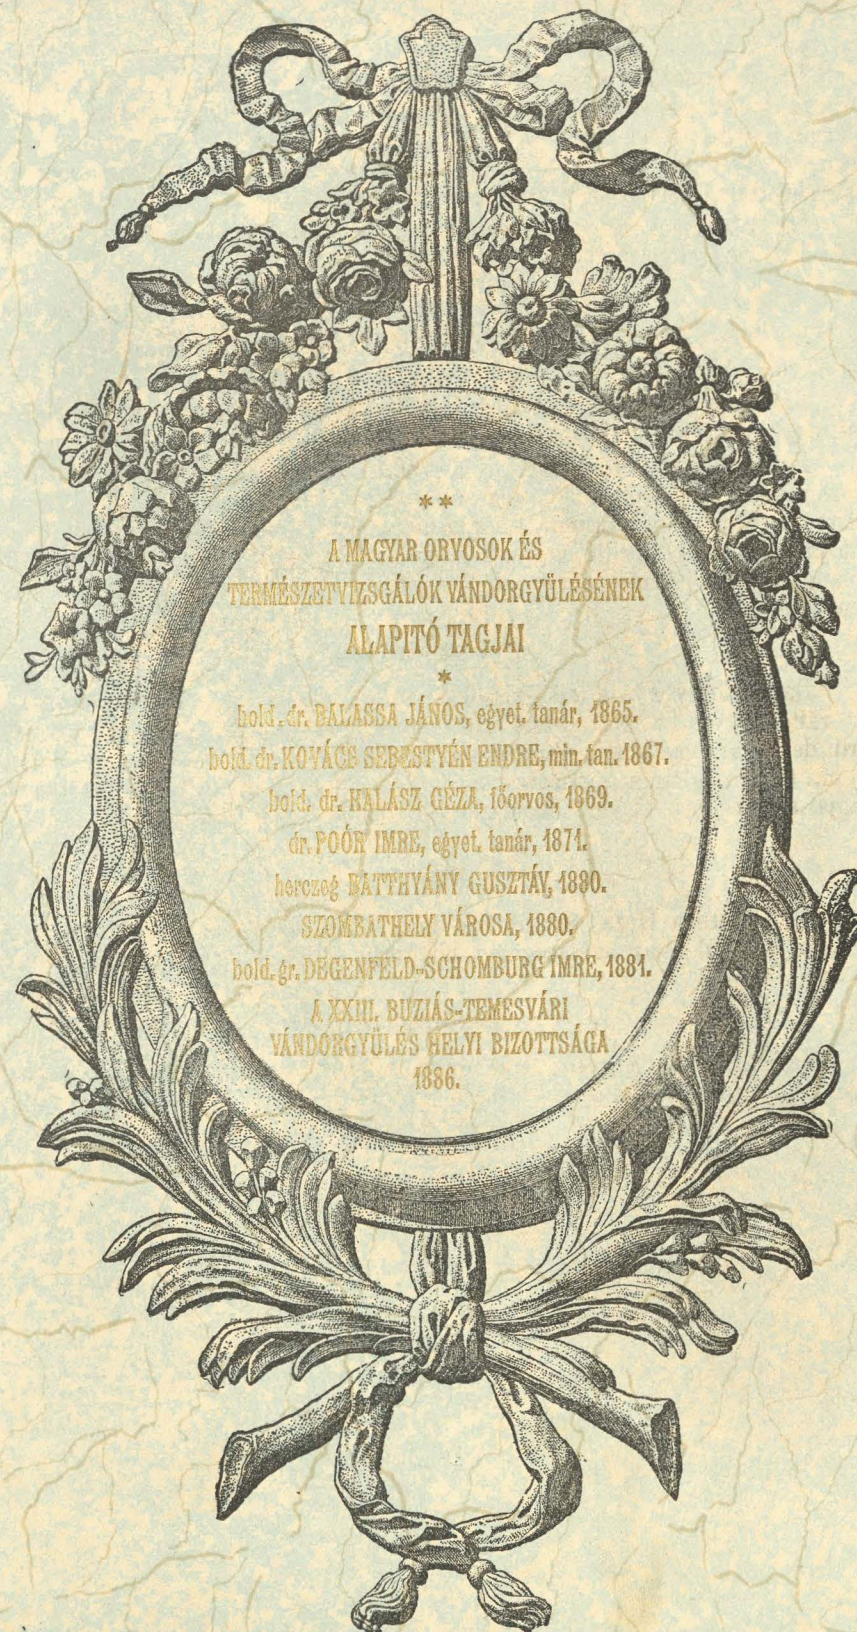 **
A MAGYAR ORVOSOK ÉS
TERMÉSZETVIZSGÁLÓK VÁNDORGYÜLÉSÉNEK
ALAPITÓ TAGJAI
*
bold. dr. BALASSA JÁNOS, egyet. tanár, 1865.
bold. dr. KOVÁCS SEBESTYÉN ENDRE, min. tan. 1867.
bold. dr. HALÁSZ GÉZA, főorvos, 1869.
dr. POÓR IMRE, egyet. tanár, 1871.
herczeg BATTHYÁNY GUSZTÁV, 1880.
SZOMBATHELY VÁROSA, 1880.
bold. gr. DEGENFELD-SCHOMBURG IMRE, 1881.
A XXIII. BUZIÁS-TEMESVÁRI
VÁNDORGYÜLÉS HELYI BIZOTTSÁGA
1886.